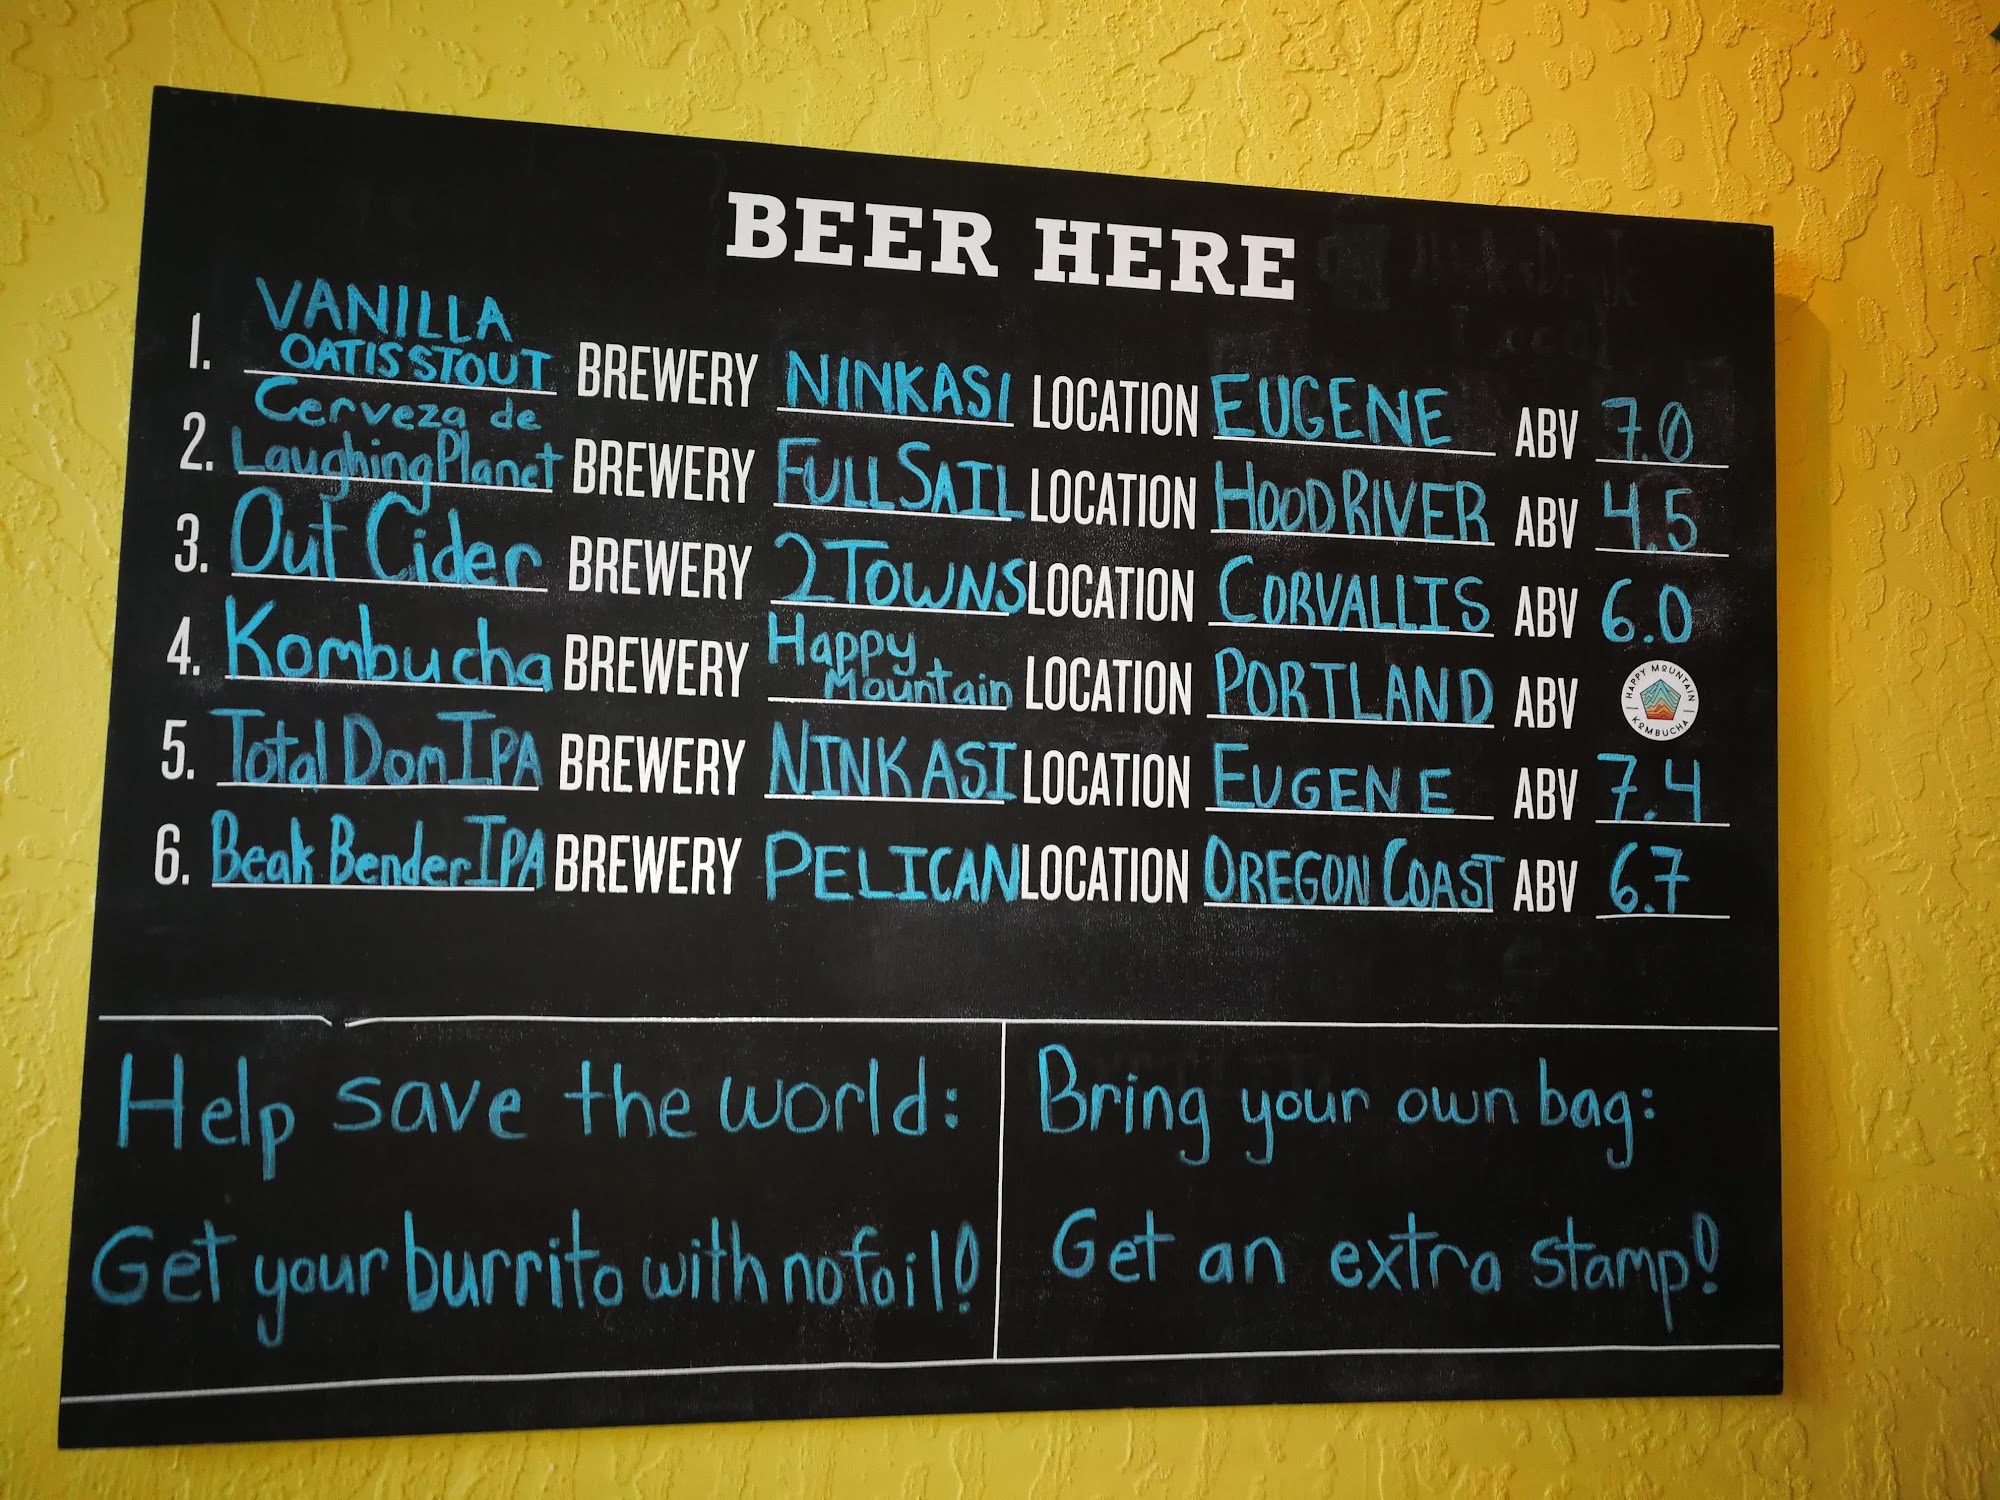 BEER HERE
1. VANILLA OATIS STOUT BREWERY NINKASI LOCATION EUGENE ABV 7.0
2. Cerveza de Laughing Planet BREWERY FULL SAIL LOCATION HOOD RIVER ABV 4.5
3. Out Cider BREWERY 2 TOWNS LOCATION CORVALLIS ABV 6.0
4. Kombucha BREWERY Happy Mountain LOCATION PORTLAND ABV HAPPY MOUNTAIN KOMBUCHA
5. Total Dom IPA BREWERY NINKASI LOCATION EUGENE ABV 7.4
6. Beak Bender IPA BREWERY PELICAN LOCATION OREGON COAST ABV 6.7
Help save the world:
Get your burrito with no foil!
Bring your own bag:
Get an extra stamp!